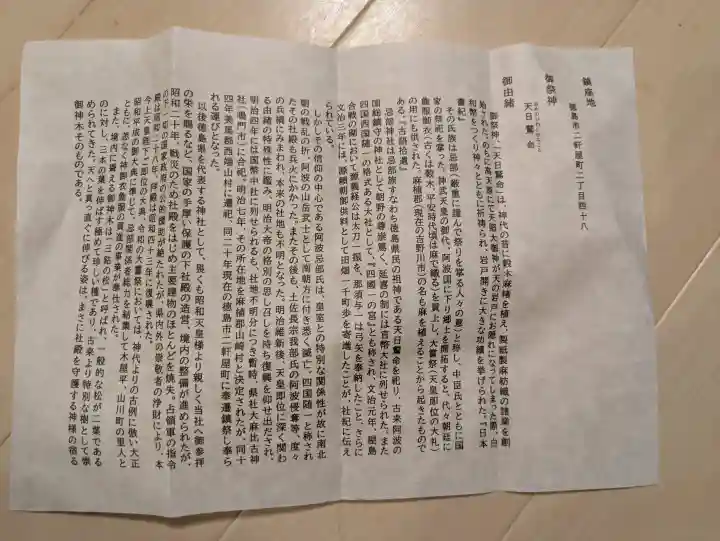 鎮座地
徳島市二軒屋町二丁目四十八
御祭神
天日鷲命
御由緒
御祭神、「天日鷲命」は、神代の昔に穀木麻緒を植え、製紙製麻紡織の諸業を創
始された。のちに高天原にて天照大御神が天の岩戸にお隠れになってしまった際、白
和幣をつくり神々とともに祈祷られ、岩戸開きに大きな功績を挙げられた。『日本
書紀』
その氏族は忌部（厳重に謹んで祭りを掌る人々の意）と称し、中臣氏とともに国
家の祭祀を掌った。神武天皇の御代、阿波国に入り郷土を開拓すると、代々朝廷に
麁服御衣（古くは穀木、平安時代頃は麻で織る）を貢上し、大嘗祭（天皇即位の大礼）
の用にも供された。麻植郡（現在の吉野川市）の名も麻を植えることから起きたもので
ある。『古語拾遺』
忌部神社は忌部族すなわち徳島県民の祖神である天日鷲命を祀り、古来阿波の
国総鎮守の神社として朝野の尊崇篤く、延喜の制には官幣大社に列せられた。また
四国西国随一の格式ある大社として、『四國一の宮』とも称され、文治元年、屋島
合戦の砌において源義経公は太刀一振を、那須与一は弓矢を奉納したこと、さらに
文治三年には、源頼朝御供料として田畑一千町歩を寄進したことが、社記に伝え
られている。
しかしその信仰の中心である阿波忌部氏は、皇室との特別な関係性が故に南北
朝の戦乱の折、阿波の山岳武士として南朝方に付き悉く滅亡。四国随一と称され
たその社殿も兵火にかかった。またその後も、土佐長宗我部氏の阿波侵奪等、度々
の兵禍にみまわれ、本来の社地も不明となった。明治維新後、天皇即位に深く関わ
る由緒の特殊性に鑑み、明治大帝の格別の思し召しを持ち復興を仰せ出だされ、
明治四年には国幣中社に列せられるも、社地不明分につき暫時、県社大麻比古神
社（鳴門市）に合祀。明治七年、その所在地を麻植郡山崎村と決定されたが、同十
四年美馬郡西端山村に遷祀、同二十年現在の徳島市二軒屋町に奉遷鎮祭し奉ら
れる運びとなった。
以後徳島県を代表する神社として、畏くも昭和天皇様より親しく当社へ御参拝
の栄を賜るなど、国家の手厚い保護の下社殿の造営、境内の整備が進められたが、
昭和二十年、戦災のため社殿をはじめ主要建物のほとんどを焼失。占領軍の指令
の下一切の国家政府の公的援助が絶たれたが、県内外の崇敬者の浄財により、本
殿は昭和二十八年、拝殿は昭和四十三年に復興された。
今上天皇陛下ご即位の大典、令和の大嘗祭においては、神代よりの古例に倣い大正
昭和平成の御大典に準じて、忌部関係者総力を結集して木屋平、山川町の里人と
ともに、恙なく神御衣麁服の貢進の事業が奉仕された。
また、境内に聳える御神木は『三鈷の松』と呼ばれ、一般的な松が二葉である
のに対し、三本の葉を伸ばす極めて珍しい種であり、古来より特別な樹として崇
められてきた。天へと真っ直ぐに伸びる姿は、まさに社殿を守護する神様の宿る
御神木そのものである。